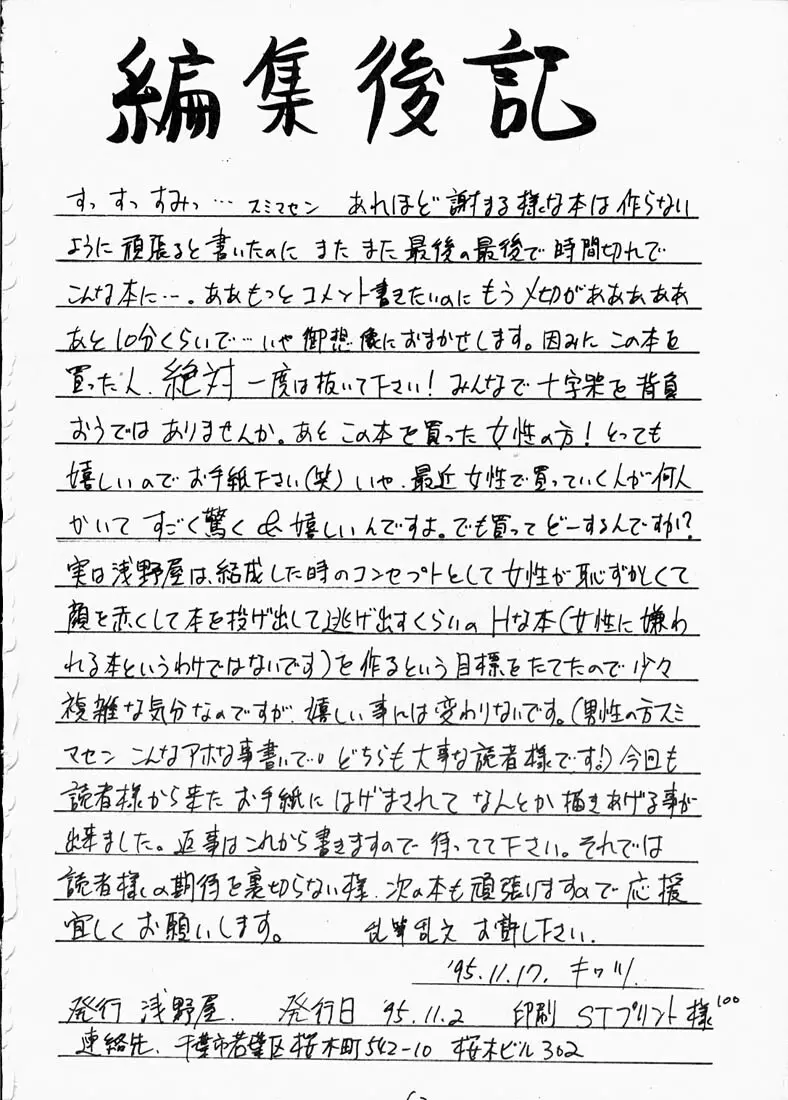 編集後記
すっすっすみっ… スミマセン あれほど謝まる様な本は作らない
ように頑張ると書いたのに またまた最後の最後で時間切れで
こんな本に…。ああもっとコメント書きたいのにもう〆切がああああ
あと10分くらいで…いや御想像におまかせします。因みにこの本を
買った人、絶対一度は抜いて下さい!みんなで十字架を背負
おうではありませんか。あとこの本を買った女性の方!とっても
嬉しいのでお手紙下さい(笑)いや、最近女性で買っていく人が何人
かいて すごく驚く&嬉しいんですよ。でも買ってどーするんですか?
実は浅野屋は、結成した時のコンセプトとして女性が恥ずかしくて
顔を赤くして本を投げ出して逃げ出すくらいのHな本(女性に嫌わ
れる本というわけではないです)を作るという目標をたてたので少々
複雑な気分なのですが、嬉しい事には変わりないです。(男性の方スミ
マセン こんなアホな事書いて。どちらも大事な読者様です!)今回も
読者様から来たお手紙にはげまされてなんとか描きあげる事が
出来ました。返事はこれから書きますので待ってて下さい。それでは
読者様の期待を裏切らない様、次の本も頑張りますので応援
宜しくお願いします。 乱筆乱文お許し下さい.
'95.11.17. キツツ.
発行 浅野屋. 発行日 '95.11.2 印刷 STプリント様100
連絡先、千葉市若葉区桜木町542-10 桜木ビル302